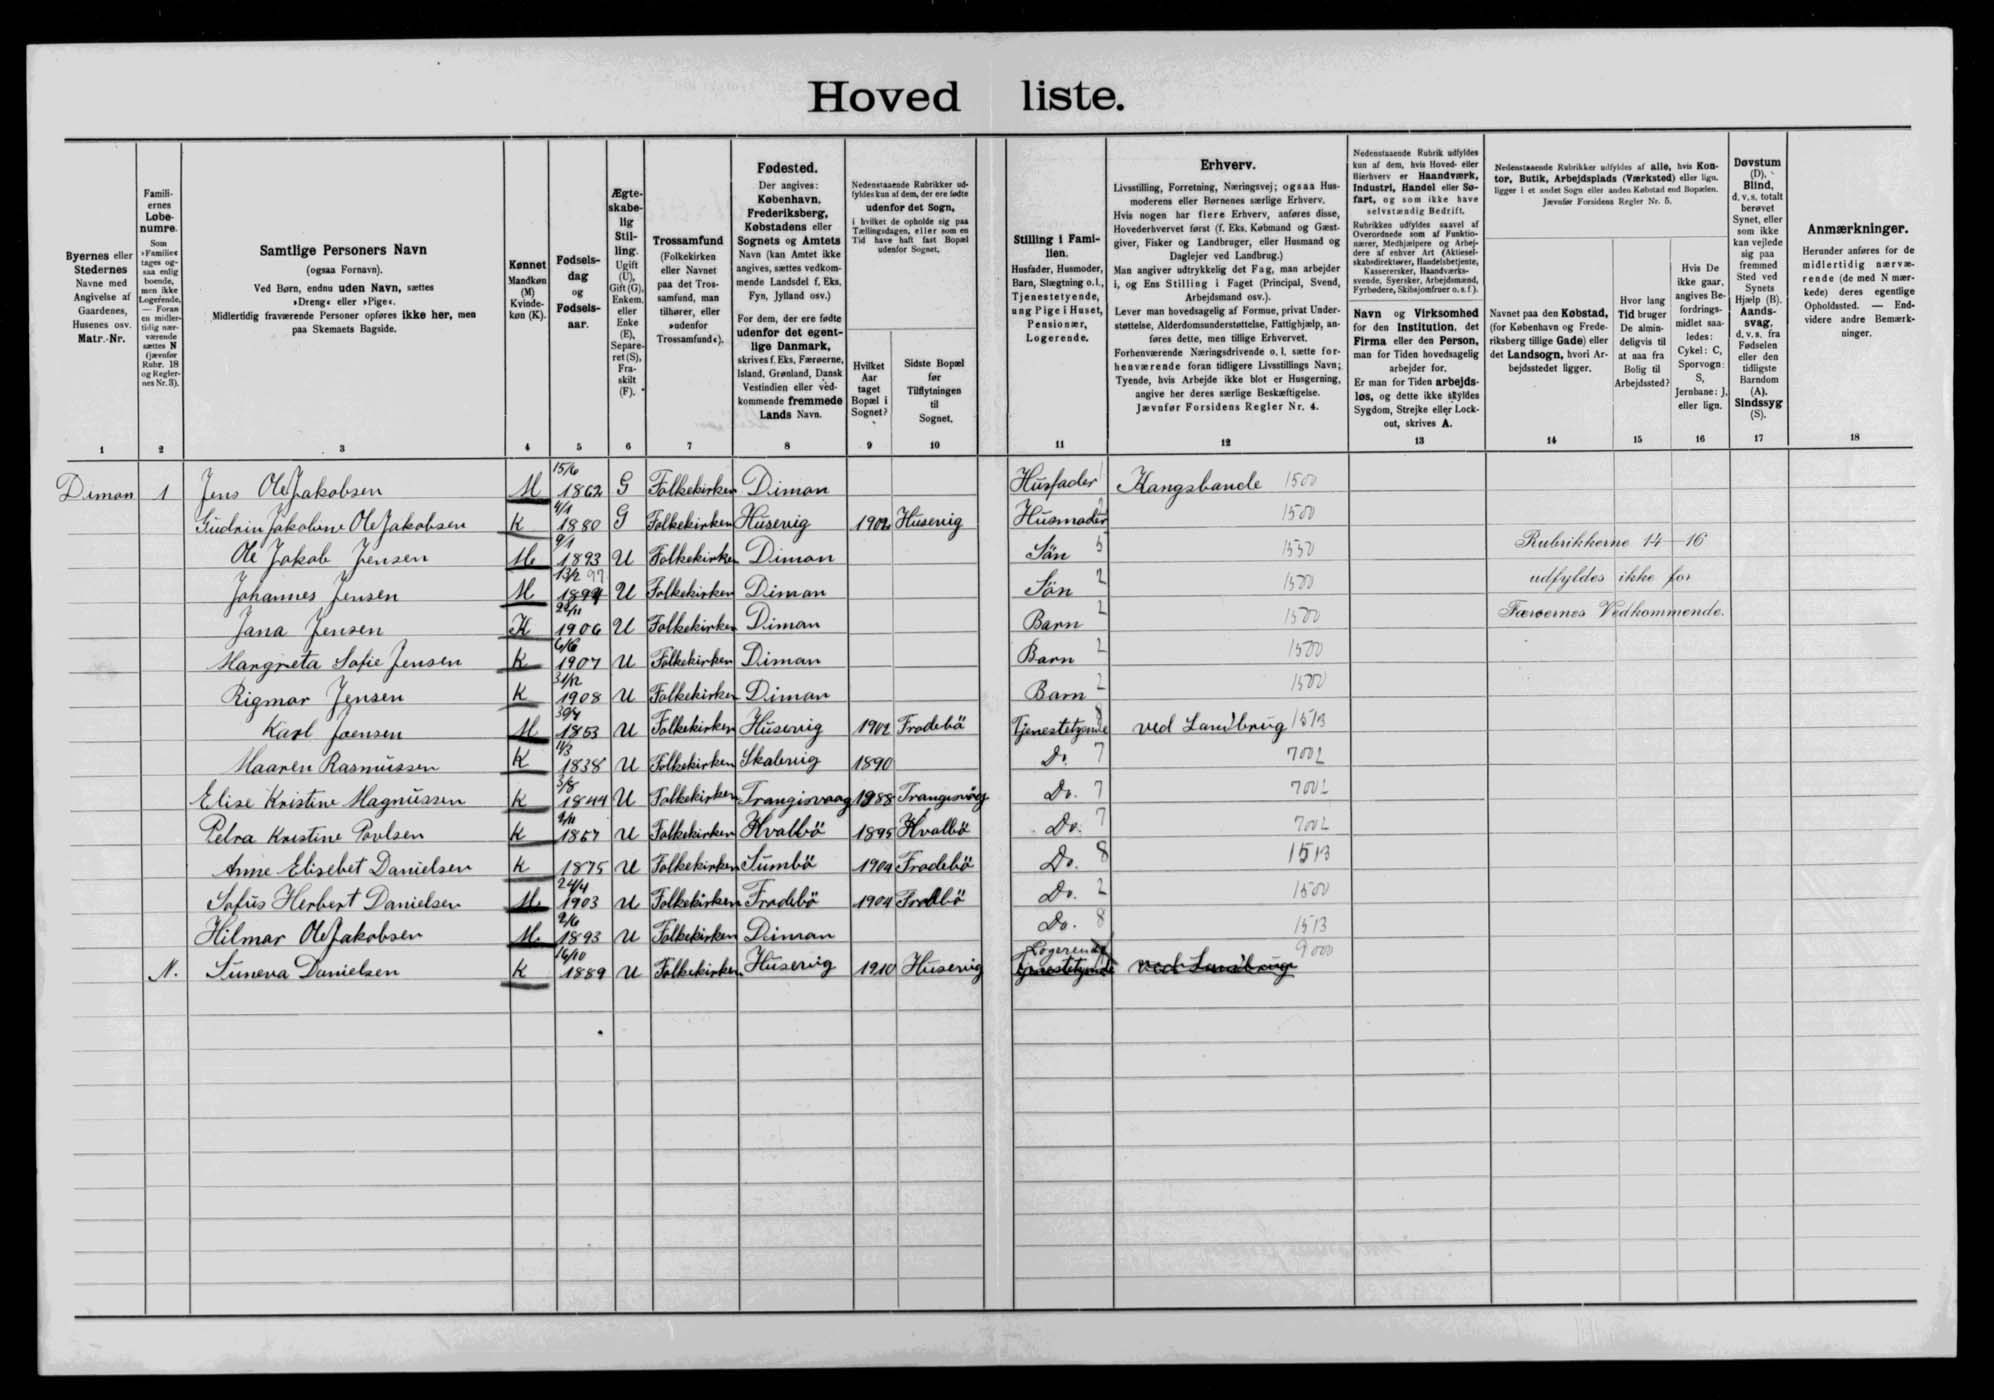 Hoved liste.
Byernes eller Stedernes Navne med Angivelse af Gaardenes, Husenes osv. Matr.-Nr.
Familiernes Løbenumre.
Som »Familie« tages ogsaa enlig boende, men ikke Logerende, — Foran en midlertidig nærværende sættes N (jævnfør Rubr. 18 og Reglernes Nr. 3).
Samtlige Personers Navn
(ogsaa Fornavn).
Ved Børn, endnu uden Navn, sættes »Dreng« eller »Pige«.
Midlertidig fraværende Personer opføres ikke her, men paa Skemaets Bagside.
Kønnet Mandkøn (M) Kvindekøn (K).
Fødselsdag og Fødselsaar.
Ægteskabelig Stilling. Ugift (U), Gift (G), Enkem. eller Enke (E), Separeret (S), Fraskilt (F).
Trossamfund (Folkekirken eller Navnet paa det Trossamfund, man tilhører, eller »udenfor Trossamfund«).
Fødested.
Der angives: København, Frederiksberg, Købstadens eller Sognets og Amtets Navn (kan Amtet ikke angives, sættes vedkommende Landsdel f. Eks. Fyn, Jylland osv.)
For dem, der ere fødte udenfor det egentlige Danmark, skrives f. Eks. Færøerne, Island, Grønland, Dansk Vestindien eller vedkommende fremmede Lands Navn.
Nedenstaaende Rubrikker udfyldes kun af dem, der ere fødte udenfor det Sogn, i hvilket de opholde sig paa Tællingsdagen, eller som en Tid have haft fast Bopæl udenfor Sognet.
Hvilket Aar taget Bopæl i Sognet?
Sidste Bopæl før Tilflytningen til Sognet.
Stilling i Familien.
Husfader, Husmoder, Barn, Slægtning o.l., Tjenestetyende, ung Pige i Huset, Pensionær, Logerende.
Erhverv.
Livsstilling, Forretning, Næringsvej; ogsaa Husmoderens eller Børnenes særlige Erhverv.
Hvis nogen har flere Erhverv, anføres disse, Hovederhvervet først (f. Eks. Købmand og Gæstgiver, Fisker og Landbruger, eller Husmand og Daglejer ved Landbrug.)
Man angiver udtrykkelig det Fag, man arbejder i, og Ens Stilling i Faget (Principal, Svend, Arbejdsmand osv.).
Lever man hovedsagelig af Formue, privat Understøttelse, Alderdomsunderstøttelse, Fattighjælp, anføres dette, men tillige Erhvervet.
Forhenværende Næringsdrivende o. l. sætte forhenværende foran tidligere Livsstillings Navn; Tyende, hvis Arbejde ikke blot er Husgerning, angive her deres særlige Beskæftigelse.
Jævnfør Forsidens Regler Nr. 4.
Nedenstaaende Rubrik udfyldes kun af dem, hvis Hoved- eller Bierhverv er Haandværk, Industri, Handel eller Søfart, og som ikke have selvstændig Bedrift.
Rubrikken udfyldes saavel af Overordnede som af Funktionærer, Medhjælpere og Arbejdere af enhver Art (Aktieselskabsdirektører, Handelsbetjente, Kasserersker, Haandværkssvende, Syersker, Arbejdsmænd, Fyrbødere, Skibsjomfruer o.s.f.).
Navn og Virksomhed for den Institution, det Firma eller den Person, man for Tiden hovedsagelig arbejder for.
Er man for Tiden arbejdsløs, og dette ikke skyldes Sygdom, Strejke eller Lockout, skrives A.
Nedenstaaende Rubrikker udfyldes af alle, hvis Kontor, Butik, Arbejdsplads (Værksted) eller lign. ligger i et andet Sogn eller anden Købstad end Bopælen.
Jævnfør Forsidens Regler Nr. 5.
Navnet paa den Købstad, (for København og Frederiksberg tillige Gade) eller det Landsogn, hvori Arbejdsstedet ligger.
Hvor lang Tid bruger De almindeligvis til at naa fra Bolig til Arbejdssted?
Hvis De ikke gaar, angives Befordringsmidlet saaledes: Cykel: C, Sporvogn: S, Jernbane: J, eller lign.
Døvstum (D), Blind, d.v.s. totalt berøvet Synet, eller som ikke kan vejlede sig paa fremmed Sted ved Synets Hjælp (B). Aandssvag, d.v.s. fra Fødselen eller den tidligste Barndom (A). Sindssyg (S).
Anmærkninger.
Herunder anføres for de midlertidig nærværende (de med N mærkede) deres egentlige Opholdssted. — Endvidere andre Bemærkninger.
1 2 3 4 5 6 7 8 9 10 11 12 13 14 15 16 17 18
Dimon 1 Jens Ole Jakobsen M 15/6 1862 G Folkekirken Dimon Husfader Kongsbonde 1500
Gudrin Jakobine Ole Jakobsen K 4/1 1880 G Folkekirken Husevig 1902 Husevig Husmoder 2 1500
Ole Jakob Jensen M 9/1 1893 U Folkekirken Dimon Sön 5 1550 Rubrikkerne 14–16
Johannes Jensen M 13/2 97 U Folkekirken Dimon Sön 2 1500 udfyldes ikke for
Jana Jensen K 22/11 1906 U Folkekirken Dimon Barn 2 1500 Færøernes Vedkommende.
Margreta Sofie Jensen K 6/6 1907 U Folkekirken Dimon Barn 2 1500
Rigmor Jensen K 31/12 1908 U Folkekirken Dimon Barn 2 1500
Karl Joensen M 1853 U Folkekirken Husevig 1902 Frodebö Tjenestetyende 8 ved Landbrug 1513
Maaren Rasmussen K 11/3 1838 U Folkekirken Skalevig 1890 Do. 7 7002
Elise Kristine Magnussen K 3/8 1844 U Folkekirken Trangisvaag 1888 Trangisvaag Do. 7 7002
Petra Kristine Poulsen K 1857 U Folkekirken Hvalbö 1895 Hvalbö Do. 7 7002
Anne Elisebet Danielsen K 1875 U Folkekirken Sumbö 1904 Frodebö Do. 8 1513
Sofus Herbert Danielsen M 24/4 1903 U Folkekirken Frodebö 1904 Frodebö Do. 2 1500
Hilmar Ole Jakobsen M. 2/6 1893 U Folkekirken Dimon Do. 8 1513
N. Suneva Danielsen K 16/10 1889 U Folkekirken Husevig 1910 Husevig Logerende Tjenestetyende ved Landbrug 9000